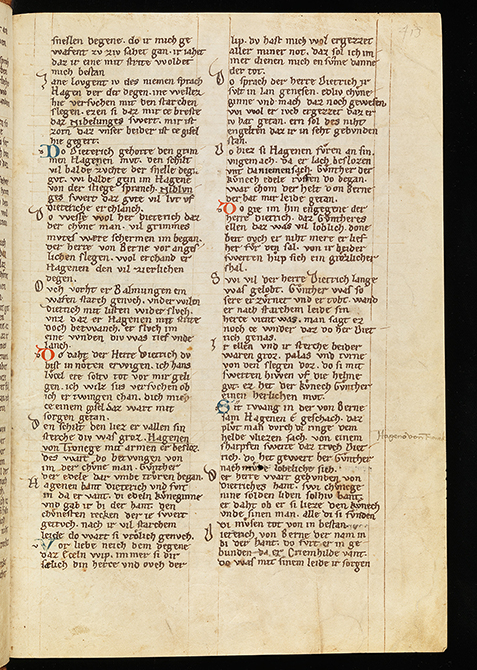 snellen degene. do ir mich ge
wafent zv ziv sahet gan. ir iahet
daz ir eine mit strite woldet
mich bestan
Jane lougent iv des niemen sprach
Hagen der degen. ine welle
hie versuchen mit den starchen
slegen. ezen si daz mir ce breste
daz Nibelunges swert. mir ist
zorn daz vnser beider ist ce gisel
hie gegert.
Do Dieterich gehorte den grim
men Hagenen mvt. den schilt
vil balde zvchte der snelle degen
gvt. wi balde gein im Hagene
von der stiege spranch. Niblvn
ges swert daz gvte vil lvt vf
dieteriche erchlanch.
Do wesse wol her dieterich daz
der chvne man. vil grimmes
mvtes were schermen im began
der herre von Berne vor angest
lichen slegen. wol erchand er
Hagenen den vil zierlichen
degen.
Ouch vorht er Balmungen ein
wafen starch genvch. vnder wilen
dieterich mit listen wider slvch.
vnz daz er Hagenen mit strite
doch betwanch. er slvch im
eine wnden div was tief vnde
lanch.
Do daht der Herre Dieterich du
bist in noten erwigen. ich hans
lvcel ere soltv tot vor mir geli
gen. ich wilz sus versvchen ob
ich er twingen chan. dich mir
ce einem gisel daz wart mit
sorgen getan.
Den schilt den liez er vallen sin
sterche div was groz. Hagenen
von Tronege mit armen er besloz.
des wart do betwngen von
im der chvne man. Gvnther
der edele dar vmbe trvren began.
Hagenen bant dieterich vnd fvrt
in da er vant. di edeln kuneginne
vnd gab ir di her bant. den
chvnesten recken der ie swert
getrvch. nach ir vil starchem
leide do wart si vrolich genvch.
Vor liebe neich dem degene
daz Eceln wip. immer si dir
sælich din herce vnd ovch der
lip. dv hast mich wol ergezzet
aller miner not. daz sol ich im
mer dienen mich en svme danne
der tot.
Do sprach der herre Dieterich ir
svlt in lan genesen. edliv chvne
ginne vnd mach daz noch gewesen
wi wol er ivch ergezzet daz er
iv hat getan. ern sol des niht
engelten daz ir in seht gebvnden
stan.
Do hiez si Hagenen fvren an sin
vngemach. da er lach beslozen
vnt da niemen sach. Gvnther der
kvnech edele rvffen do began.
war chom der helt von Berne
der hat mir leide getan.
Do gie im hin engegene der
herre dieterich. daz Gvntheres
ellen daz was vil loblich. done
beit ovch er niht mere er lief
her fvr den sal. von ir beider
swerten hvp sich ein grozlicher
schal.
Swi vil der herre Dieterich lange
was gelobt. Gvnther was so
sere erzvrnet vnd er tobt. wand
er nach starchem leide sin
herce vient was. man sagt ez
noch ce wnder daz do her Diet
rich genas.
Ir ellen vnd ir sterche beider
waren groz. palas vnd tvrne
von den slegen doz. do si mit
swerten hiwen vf die helme
gvt. ez het der kvnech Gvnther
einen herlichen mvt.
Sit twang in der von Berne
sam Hagenen e geschach. daz
plvt man dvrch di ringe dem
helde vliezen sach. von einem
scharpfen swerte daz trvch Diet
rich. do het gewert her Gvnther
nach mvde lobeliche sich.
Der herre wart gebvnden von
Dietriches hant. swi chvnege
nine solden liden solhiv bant.
er daht ob er si lieze den kvnech
vnde sinen man. alle di si fvnden
di mvsen tot von in bestan.
Dieterich von Berne der nam in
bi der hant. do fvrt er in ge
bunden da er Criemhilde vant.
do was mit sinem leide ir sorgen